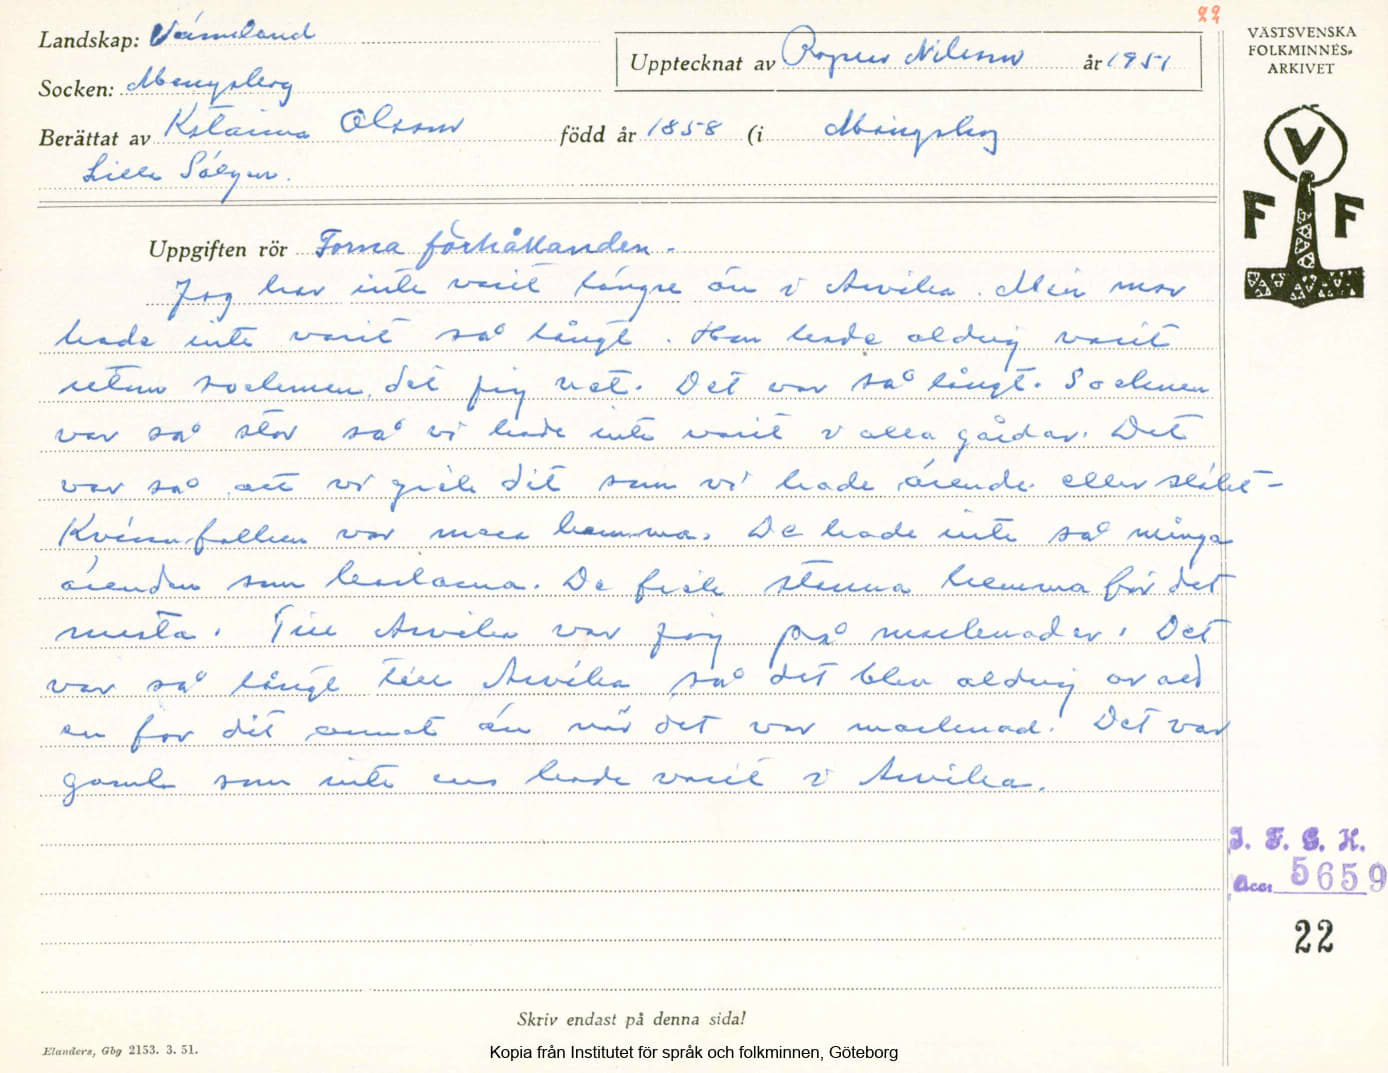 22
Landskap: Värmland
Upptecknat av Ragnar Nilsson år 1951
VÄSTSVENSKA
FOLKMINNES-
ARKIVET
Socken: Mangskog
Berättat av Katarina Olsson född år 1858 (i Mangskog
Lilla Sälgen.
V
F F
Uppgiften rör Forna förhållanden.
Jag har inte varit längre än i Arvika. Min mor
hade inte varit så långt. Hon hade aldrig varit
utom socknen, det jag vet. Det var så långt. Socknen
var så stor så vi hade inte varit i alla gårdar. Det
var så att vi gick dit som vi hade ärende eller släkt-
Kvinnfolken var mera hemma. De hade inte så många
ärenden som karlarna. De fick stanna hemma för det
mesta. Till Arvika var jag på marknader. Det
var så långt till Arvika så det blev aldrig av att
en for dit annat än när det var marknad. Det var
gamla som inte ens hade varit i Arvika.
I. F. G. H.
Acc: 5659
22
Skriv endast på denna sida!
Elanders, Gbg 2153. 3. 51.
Kopia från Institutet för språk och folkminnen, Göteborg